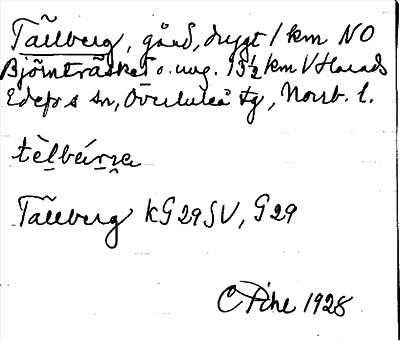 Tallberg, gård, drygt 1 km NO
Björnträsket o. ung. 13½ km V Harads
Edefors sn, Överluleå tg, Norrb. l.
Tallberg kG29SV, G29
1928